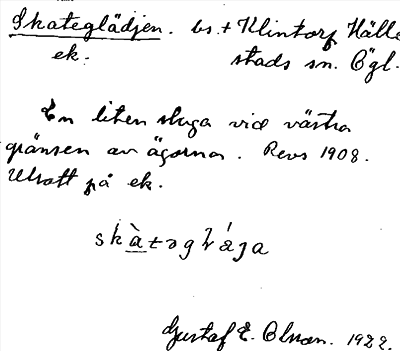 Skateglädjen. bs.t Klintorp Hälle
ek. stads sn. Ögl.
En liten stuga vid västra
gränsen av ägorna. Revs 1908.
Utsatt på ek.
Gustaf E. Olsson. 1922.